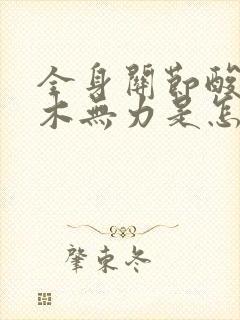 全身關節酸
木無力是怎
肇東冬